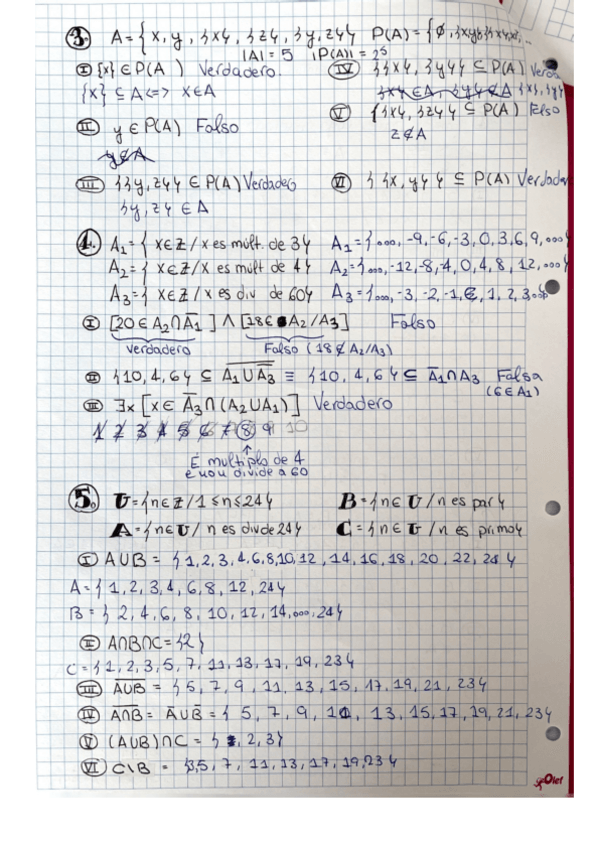 3. A = { x, y, {x}, {z}, {y, z}} P(A) = {∅, {x},
|A| = 5 |P(A)| = 2⁵
I {x} ∈ P(A) Verdadero. IV {{x}, {y}} ⊆ P(A) Verda
{x} ⊆ A <=> x∈A
II y ∈ P(A) Falso V {{x}, {z}} ⊆ P(A) Flso
z∉A
III {{y, z}} ∈ P(A) Verdadero VI { {x, y} } ⊆ P(A) Verdader
{y, z} ∈ A
4. A₁ = { x∈ℤ / x es múlt. de 3} A₁ = {..., -9, -6, -3, 0, 3, 6, 9, ...}
A₂ = { x∈ℤ / x es múlt de 4} A₂ = {..., -12, -8, -4, 0, 4, 8, 12, ...}
A₃ = { x∈ℤ / x es div de 60} A₃ = {..., -3, -2, -1, 1, 2, 3...}
I [20 ∈ A₂ ∩ A̅₁ ] ∧ [18 ∈ A₂ / A₃] Falso
verdadero Falso (18 ∉ A₂/A₃)
II {10, 4, 6} ⊆ A̅₁ ∪ A̅₃ ≡ {10, 4, 6} ⊆ A̅₁ ∩ A₃ Falsa
(6∈A₁)
III ∃x [x ∈ A̅₃ ∩ (A₂ ∪ A₁)] Verdadero
1 2 3 4 5 6 7 8 9 10
É multiplo de 4
e non divide a 60
5. U = {n∈ℤ / 1 ≤ n ≤ 24} B = {n∈U / n es par}
A = {n∈U / n es div de 24} C = {n∈U / n es primo}
I A∪B = {1, 2, 3, 4, 6, 8, 10, 12, 14, 16, 18, 20, 22, 24}
A = {1, 2, 3, 4, 6, 8, 12, 24}
B = {2, 4, 6, 8, 10, 12, 14, ..., 24}
II A∩B∩C = {2}
C = {1, 2, 3, 5, 7, 11, 13, 17, 19, 23}
III A̅∪̅B̅ = {5, 7, 9, 11, 13, 15, 17, 19, 21, 23}
IV A̅∩̅B̅ = A̅∪B̅ = {5, 7, 9, 11, 13, 15, 17, 19, 21, 23}
V (A∪B)∩C = { 2, 3}
VI C\B = {3, 5, 7, 11, 13, 17, 19, 23}